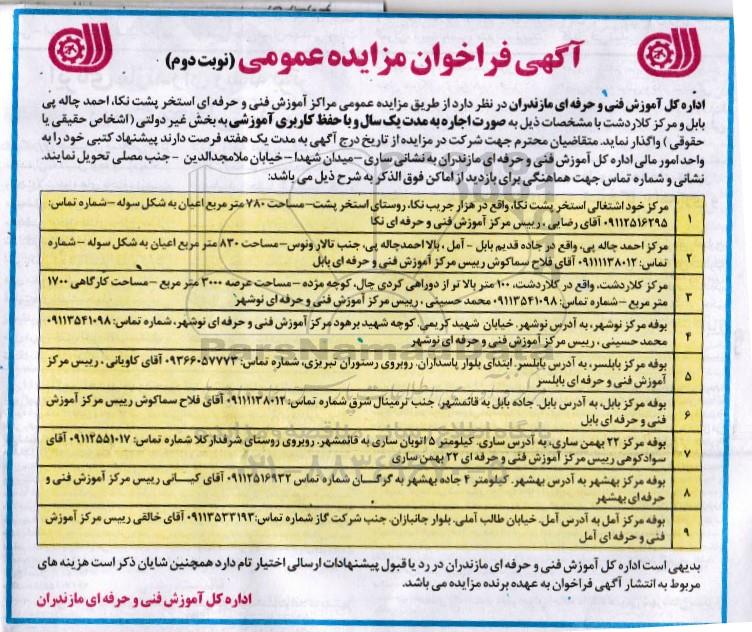 آگهی فراخوان مزایده عمومی (نوبت دوم)
اداره کل آموزش فنی و حرفه ای مازندران در نظر دارد از طریق مزایده عمومی مراکز آموزش فنی و حرفه ای استخر پشت نکا، احمد چاله پی
بابل و مرکز کلاردشت با مشخصات ذیل به صورت اجاره به مدت یک سال و با حفظ کاربری آموزشی به بخش غیر دولتی (اشخاص حقیقی یا
حقوقی) واگذار نماید. متقاضیان محترم جهت شرکت در مزایده از تاریخ درج آگهی به مدت یک هفته فرصت دارند پیشنهاد کتبی خود را به
واحد امور مالی اداره کل آموزش فنی و حرفه ای مازندران به نشانی ساری – میدان شهدا – خیابان ملامجدالدین - جنب مصلی تحویل نمایند.
نشانی و شماره تماس جهت هماهنگی برای بازدید از اماکن فوق الذکر به شرح ذیل می باشد:
۱ مرکز خود اشتغالی استخر پشت نکا، واقع در هزار جریب نکا، روستای استخر پشت – مساحت ۷۸۰ متر مربع اعیان به شکل سوله – شماره تماس:
۰۹۱۱۲۵۱۶۲۹۵ آقای رضایی ، رییس مرکز آموزش فنی و حرفه ای نکا
۲ مرکز احمد چاله پی، واقع در جاده قدیم بابل - آمل ، بالا احمدچاله پی، جنب تالار ونوس – مساحت ۸۳۰ متر مربع اعیان به شکل سوله – شماره
تماس: ۰۹۱۱۱۱۳۸۰۱۲ آقای فلاح سماکوش رییس مرکز آموزش فنی و حرفه ای بابل
۳ مرکز کلاردشت، واقع در کلاردشت، ۱۰۰ متر بالا تر از دوراهی کردی چال، کوچه مژده – مساحت عرصه ۳۰۰۰ متر مربع – مساحت کارگاهی ۱۷۰۰
متر مربع – شماره تماس: ۰۹۱۱۳۵۴۱۰۹۸ محمد حسینی ، رییس مرکز آموزش فنی و حرفه ای نوشهر
۴ بوفه مرکز نوشهر، به آدرس نوشهر. خیابان شهید کریمی. کوچه شهید برهود مرکز آموزش فنی و حرفه ای نوشهر، شماره تماس: ۰۹۱۱۳۵۴۱۰۹۸
محمد حسینی ، رییس مرکز آموزش فنی و حرفه ای نوشهر
۵ بوفه مرکز بابلسر، به آدرس بابلسر. ابتدای بلوار پاسداران. روبروی رستوران تبریزی، شماره تماس: ۰۹۳۶۶۰۵۷۷۷۳ آقای کاویانی ، رییس مرکز
آموزش فنی و حرفه ای بابلسر
۶ بوفه مرکز بابل، به آدرس بابل. جاده بابل به قائمشهر. جنب ترمینال شرق شماره تماس: ۰۹۱۱۱۱۳۸۰۱۲ آقای فلاح سماکوش رییس مرکز آموزش
فنی و حرفه ای بابل
۷ بوفه مرکز ۲۲ بهمن ساری، به آدرس ساری. کیلومتر ۵ اتوبان ساری به قائمشهر. روبروی روستای شرفدارکلا شماره تماس: ۰۹۱۱۲۵۵۱۰۱۷ آقای
سوادکوهی رییس مرکز آموزش فنی و حرفه ای ۲۲ بهمن ساری
۸ بوفه مرکز بهشهر به آدرس بهشهر. کیلومتر ۴ جاده بهشهر به گرگان شماره تماس ۰۹۱۱۲۵۱۶۹۳۲ آقای کیانی رییس مرکز آموزش فنی و
حرفه ای بهشهر
۹ بوفه مرکز آمل به آدرس آمل. خیابان طالب آملی. بلوار جانبازان. جنب شرکت گاز شماره تماس: ۰۹۱۱۳۵۳۳۱۹۳ آقای خالقی رییس مرکز آموزش
فنی و حرفه ای آمل
بدیهی است اداره کل آموزش فنی و حرفه ای مازندران در رد یا قبول پیشنهادات ارسالی اختیار تام دارد همچنین شایان ذکر است هزینه های
مربوط به انتشار آگهی فراخوان به عهده برنده مزایده می باشد.
اداره کل آموزش فنی و حرفه ای مازندران